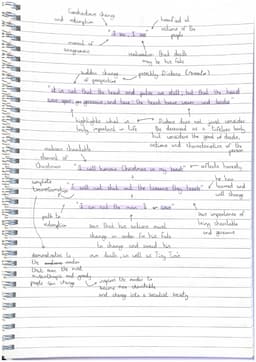 Immediate change
and redemption
horrified at
actions of the
people
"I see, I see"
moment of
recognition
realisation that death
may be his fate
sudden change
of perspective
possibly Dickens (narrator)
"it is not that the hand
and pulse was still; but that the hand
was open, generous, and true; the heart brave, warm and tender"
highlights what is
truly important in life
Dickens does not just consider
the deceased as a "lifeless body"
but considers the good of deeds,
actions and characteristics of the
person
embraces charitable
elements of
Christmas
"I will honour Christmas in my heart"
reflects honesty
complete
transformation
"I will not shut out the lessons they teach"
he has
learned and
will change
"I am not the man I was"
path to
redemption
sees that his actions must
change in order for his fate
to change and avoid his
own death, as well as Tiny Tim's
sees importance of
being charitable
and generous
demonstrates to
the readers
that even the most
misanthropic and greedy
people can change
inspires the reader to
become more charitable
and change into a socialist society